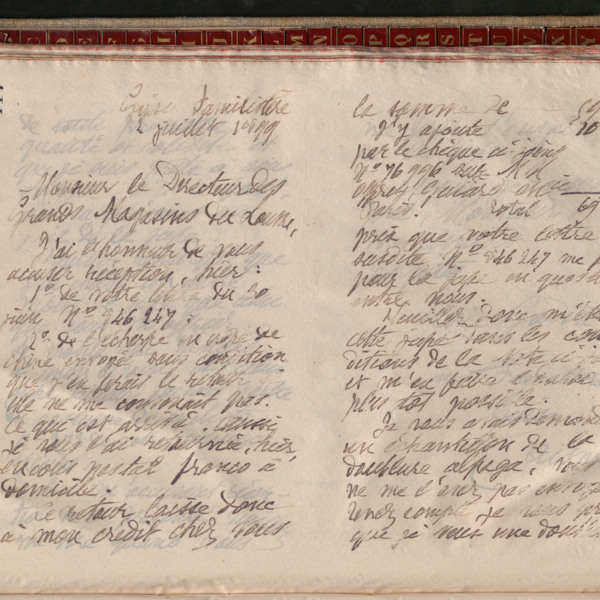 E D E F I J U K L M N O P Q R S T U V X Y
Guise Familistère
2 juillet 1899
Monsieur le Directeur des
Grands Magasins du Louvre,
J'ai l'honneur de vous
accuser réception, hier :
1º de votre lettre du 30
juin Nº 846 247 :
2º de l'écharpe en crêpe de
chine envoyé sous condition
que j'en ferais le retour
elle ne me convenait pas.
Ce qui est arrivé. Aussi
je vous l'ai retournée, hier,
en colis postal franco à
domicile.
Le retour laisse donc
à mon crédit chez vous
la somme de 59
J'y ajoute 10
par le chèque ci-joint
Nº 76 996 sur
Paris. Total 69
prix que votre lettre
susdite Nº 846 247 me
pour la jupe en
entre nous.
Veuillez donc m'
cette jupe dans les con
ditions de la note ci-
et m'en faire l'envoi
plus tôt possible.
Je vous avais demandé
un échantillon de la
doublure alpaga, vous
ne me l'avez pas envoyé
tenez compte je vous pr
que je veux une doub